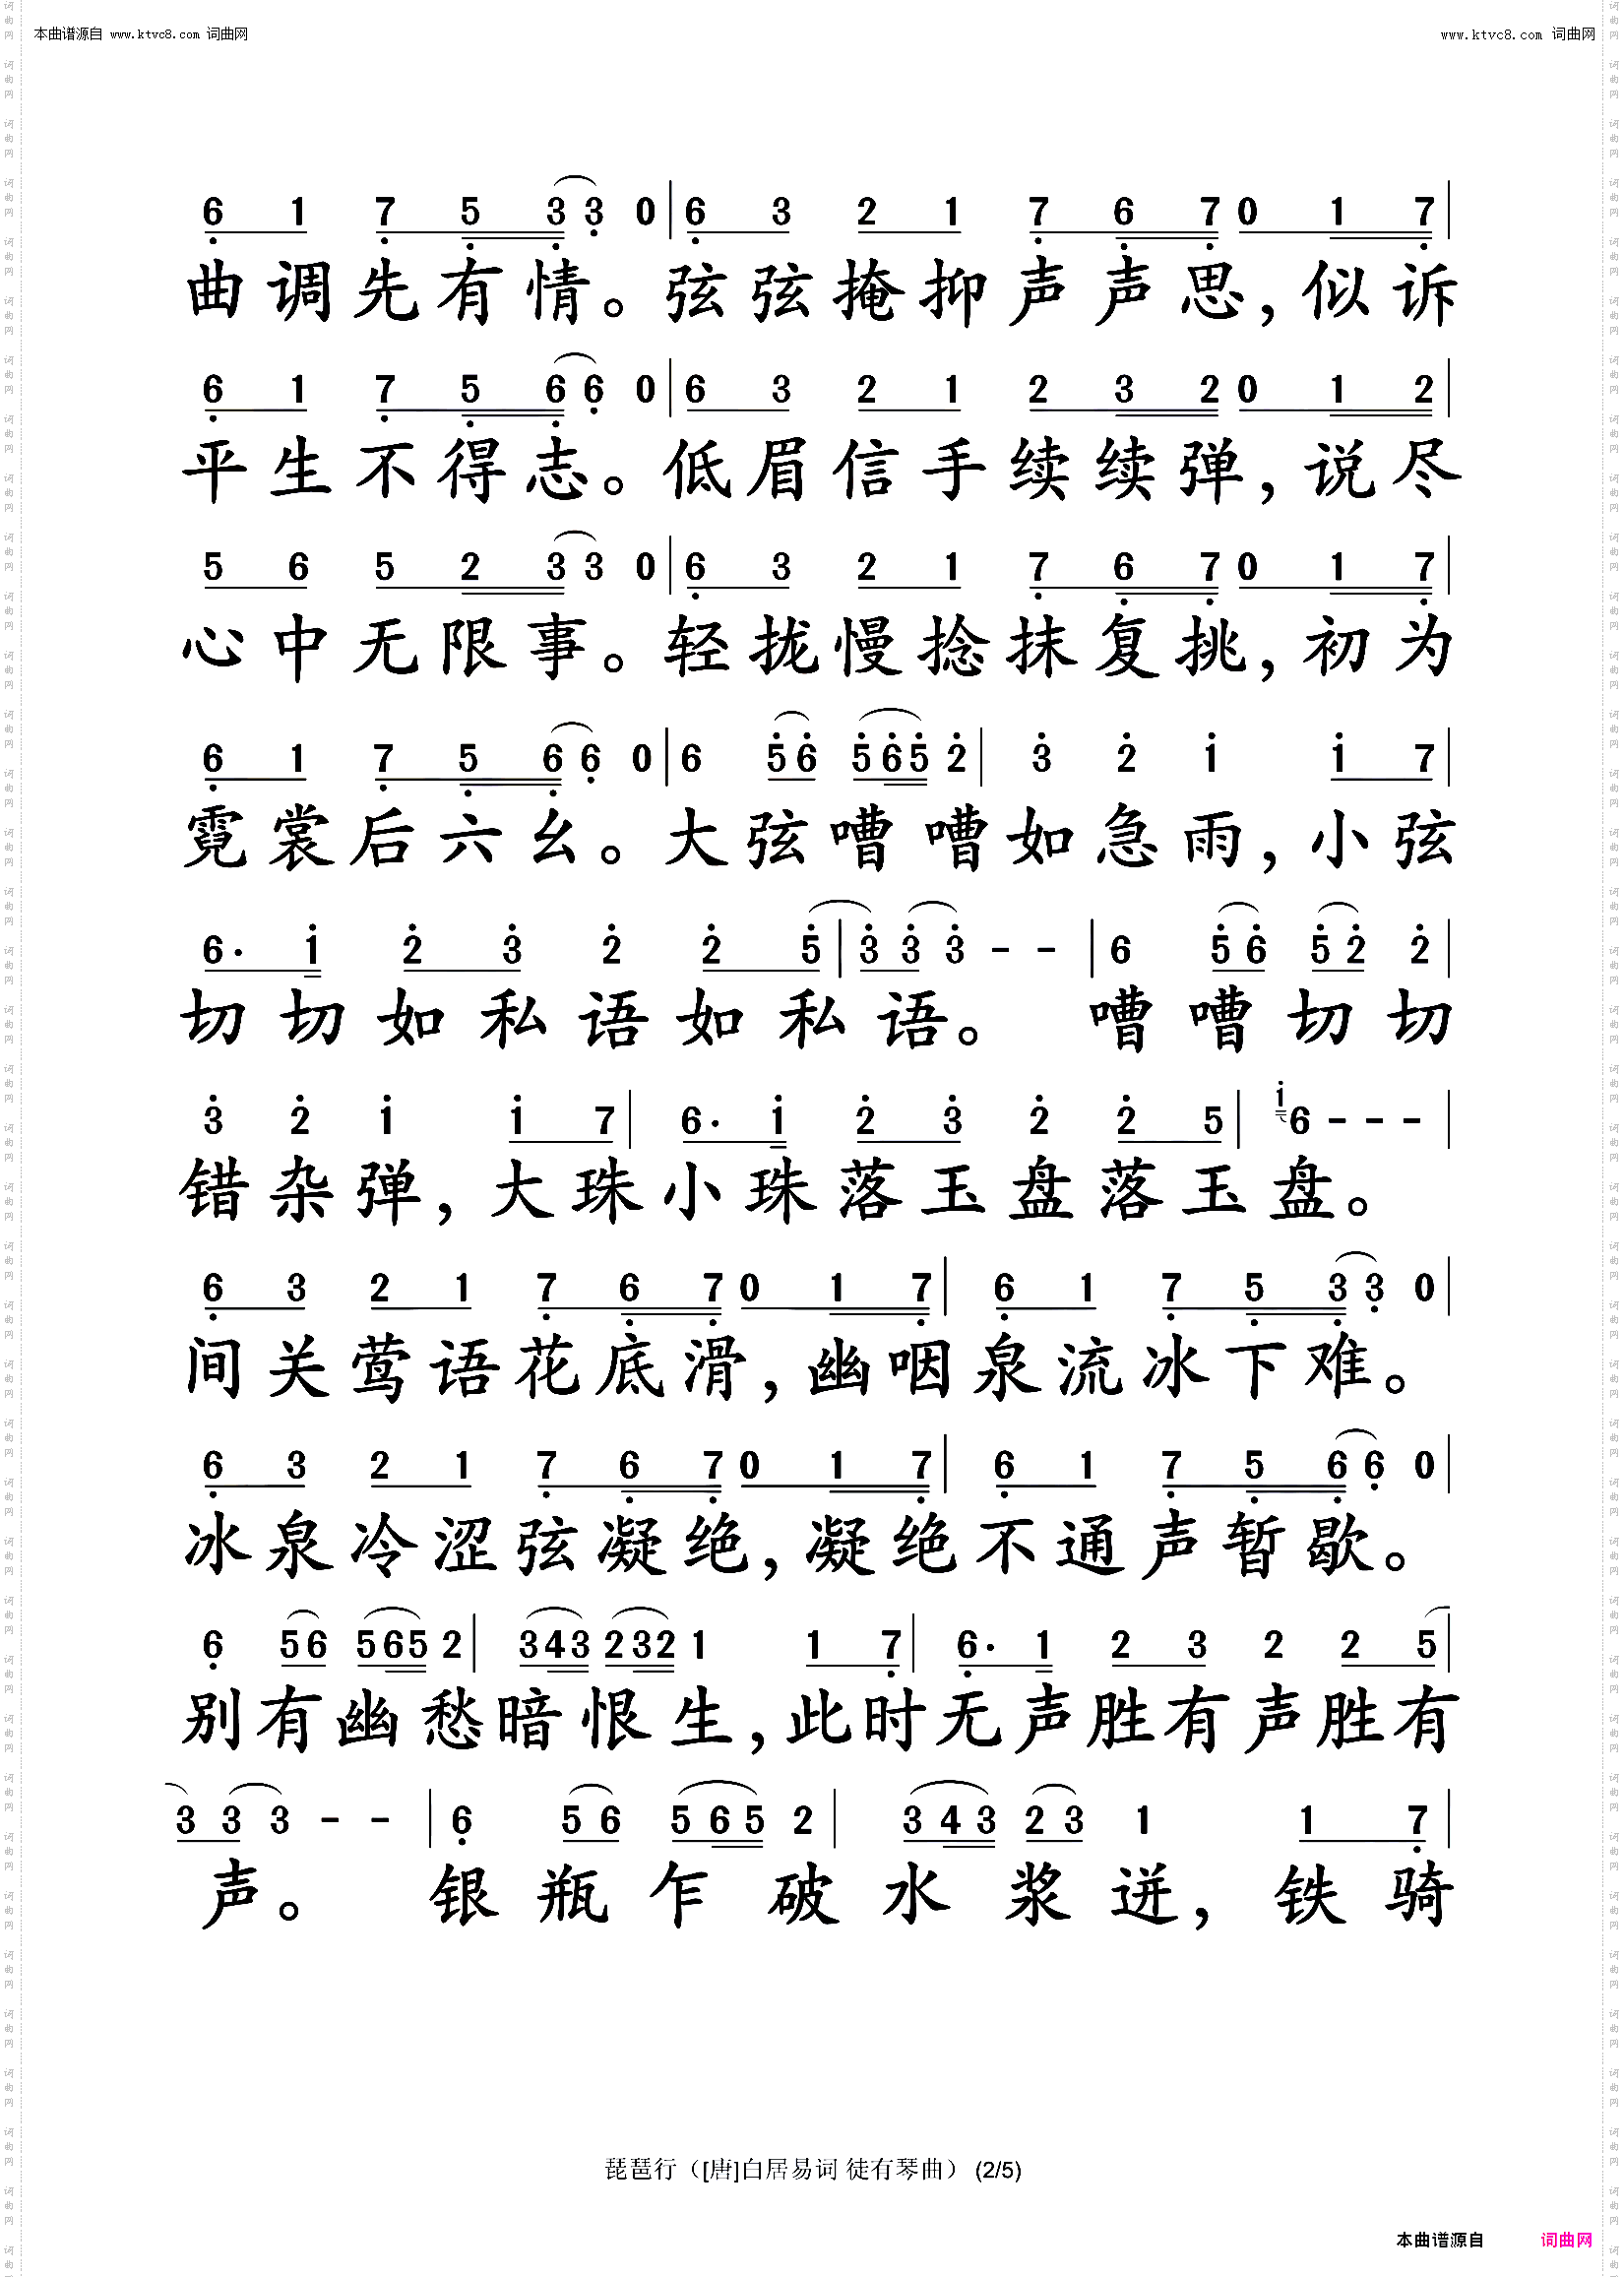 本曲谱源自 www.ktvc8.com 词曲网
www.ktvc8.com 词曲网
6 1 7 5 3 3 0 | 6 3 2 1 7 6 7 0 1 7 |
曲调先有情。弦弦掩抑声声思,似诉
6 1 7 5 6 6 0 | 6 3 2 1 2 3 2 0 1 2 |
平生不得志。低眉信手续续弹,说尽
5 6 5 2 3 3 0 | 6 3 2 1 7 6 7 0 1 7 |
心中无限事。轻拢慢捻抹复挑,初为
6 1 7 5 6 6 0 | 6 5 6 5 6 5 2 | 3 2 1 1 7 |
霓裳后六幺。大弦嘈嘈如急雨,小弦
6 · 1 2 3 2 2 5 | 3 3 3 - - | 6 5 6 5 2 2 |
切切如私语如私语。 嘈嘈切切
3 2 1 1 7 | 6 · 1 2 3 2 2 5 | 1 6 - - - |
错杂弹,大珠小珠落玉盘落玉盘。
6 3 2 1 7 6 7 0 1 7 | 6 1 7 5 3 3 0 |
间关莺语花底滑,幽咽泉流冰下难。
6 3 2 1 7 6 7 0 1 7 | 6 1 7 5 6 6 0 |
冰泉冷涩弦凝绝,凝绝不通声暂歇。
6 5 6 5 6 5 2 | 3 4 3 2 3 2 1 1 7 | 6 · 1 2 3 2 2 5 |
别有幽愁暗恨生,此时无声胜有声胜有
3 3 3 - - | 6 5 6 5 6 5 2 | 3 4 3 2 3 1 1 7 |
声。 银瓶乍破水浆迸,铁骑
琵琶行([唐]白居易词 徒有琴曲) (2/5)
本曲谱源自 词曲网